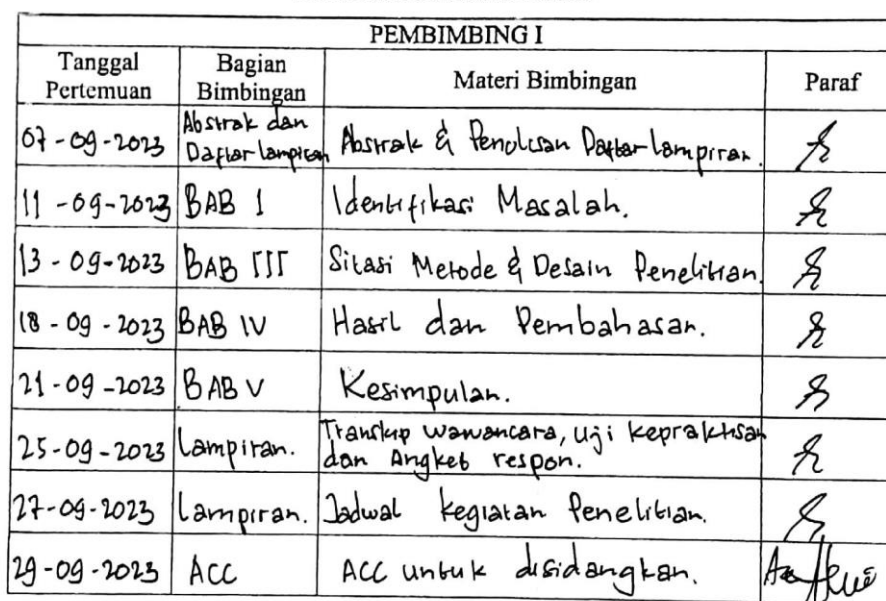 PEMBIMBING I
Tanggal Pertemuan Bagian Bimbingan Materi Bimbingan Paraf
07-09-2023 Abstrak dan Daftar lampiran Abstrak & Penulisan Daftar lampiran.
11-09-2023 BAB I Identifikasi Masalah.
13-09-2023 BAB III Sitasi Metode & Desain Penelitian.
18-09-2023 BAB IV Hasil dan Pembahasan.
21-09-2023 BAB V Kesimpulan.
25-09-2023 Lampiran. Transkip wawancara, Uji kepraktisan dan Angket respon.
27-09-2023 Lampiran. Jadwal kegiatan Penelitian.
29-09-2023 ACC ACC untuk disidangkan.